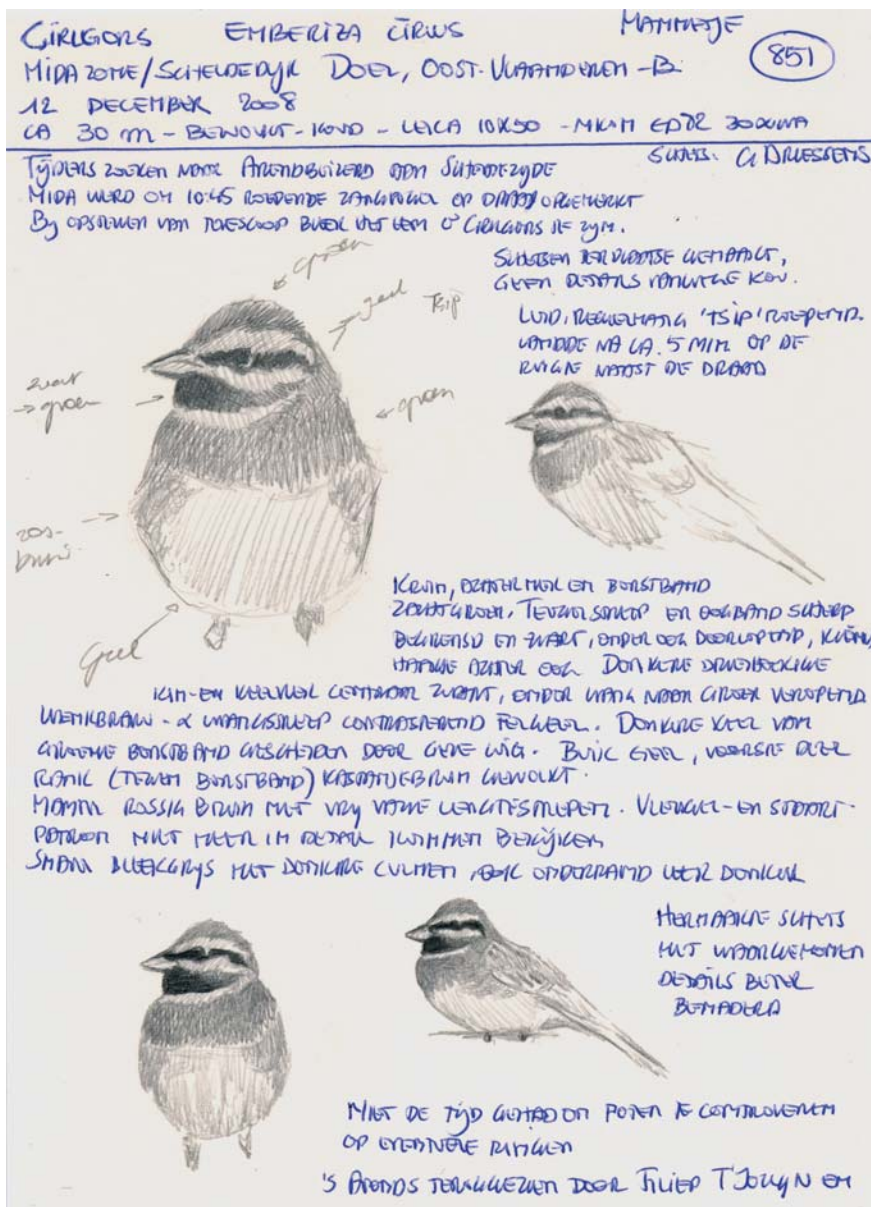 CIRLGORS EMBERIZA CIRLUS MANNETJE
MIDA ZONE/SCHELDEDIJK DOEL, OOST-VLAANDEREN -B. 851
12 DECEMBER 2008
CA 30 M - BEWOLKT - KOUD - LEICA 10X50 - NIKON ED 82 30XWA
SCHETS: G DRIESSENS
TIJDENS ZOEKEN NAAR ARENDBUIZERD AAN SCHELDEZIJDE
MIDA WERD OM 10:45 ROEPENDE ZANGVOGEL OP DRAAD OPGEMERKT
BIJ OPSTELLEN VAN TELESCOOP BLEEK HET EEN ♂ CIRLGORS TE ZIJN.
SCHETSEN TER PLAATSE GEMAAKT,
GEEN DETAILS VANWEGE KOU.
groen
geel
Tsip
LUID, REGELMATIG 'TSIP' ROEPEND.
LANDDE NA CA. 5 MIN OP DE
RUIGTE NAAST DE DRAAD
zwart
→ groen
groen
ros-
bruin
Geel
KRUIN, ACHTERNEK EN BORSTBAND
ZACHTGROEN. TEUGELSTREEP EN OOGBAND SCHERP
BEGRENSD EN ZWART, ONDER OOG DOORLOPEND, KLEIN
HAAKJE ACHTER OOG DONKERE DRIEHOEKIGE
KIN- EN KEELVLEK CENTRAAL ZWART, ONDER WANG NAAR GROEN VERLOPEND
WENKBRAUW- & WANGSTREEP CONTRASTEREND FELGEEL. DONKERE KEEL VAN
GROENE BORSTBAND GESCHEIDEN DOOR GELE WIG. BUIK GEEL, VOORSTE DEEL
FLANK (TEGEN BORSTBAND) KASTANJEBRUIN GEWOLKT.
MANTEL ROSSIG BRUIN MET VRIJ VAGE LENGTESTREPEN. VLEUGEL- EN STAART-
PATROON NIET MEER IN DETAIL KUNNEN BEKIJKEN
SNAVEL BLEEKGRIJS MET DONKERE CULMEN, OOK ONDERRAND WEER DONKER
HERMAAKTE SCHETS
MET WAARGENOMEN
DETAILS BETER
BENADERD
NIET DE TIJD GEHAD OM POTEN TE CONTROLEREN
OP EVENTUELE RINGEN
'S AVONDS TERUGGEZIEN DOOR FILIEP T'JOLLYN EN